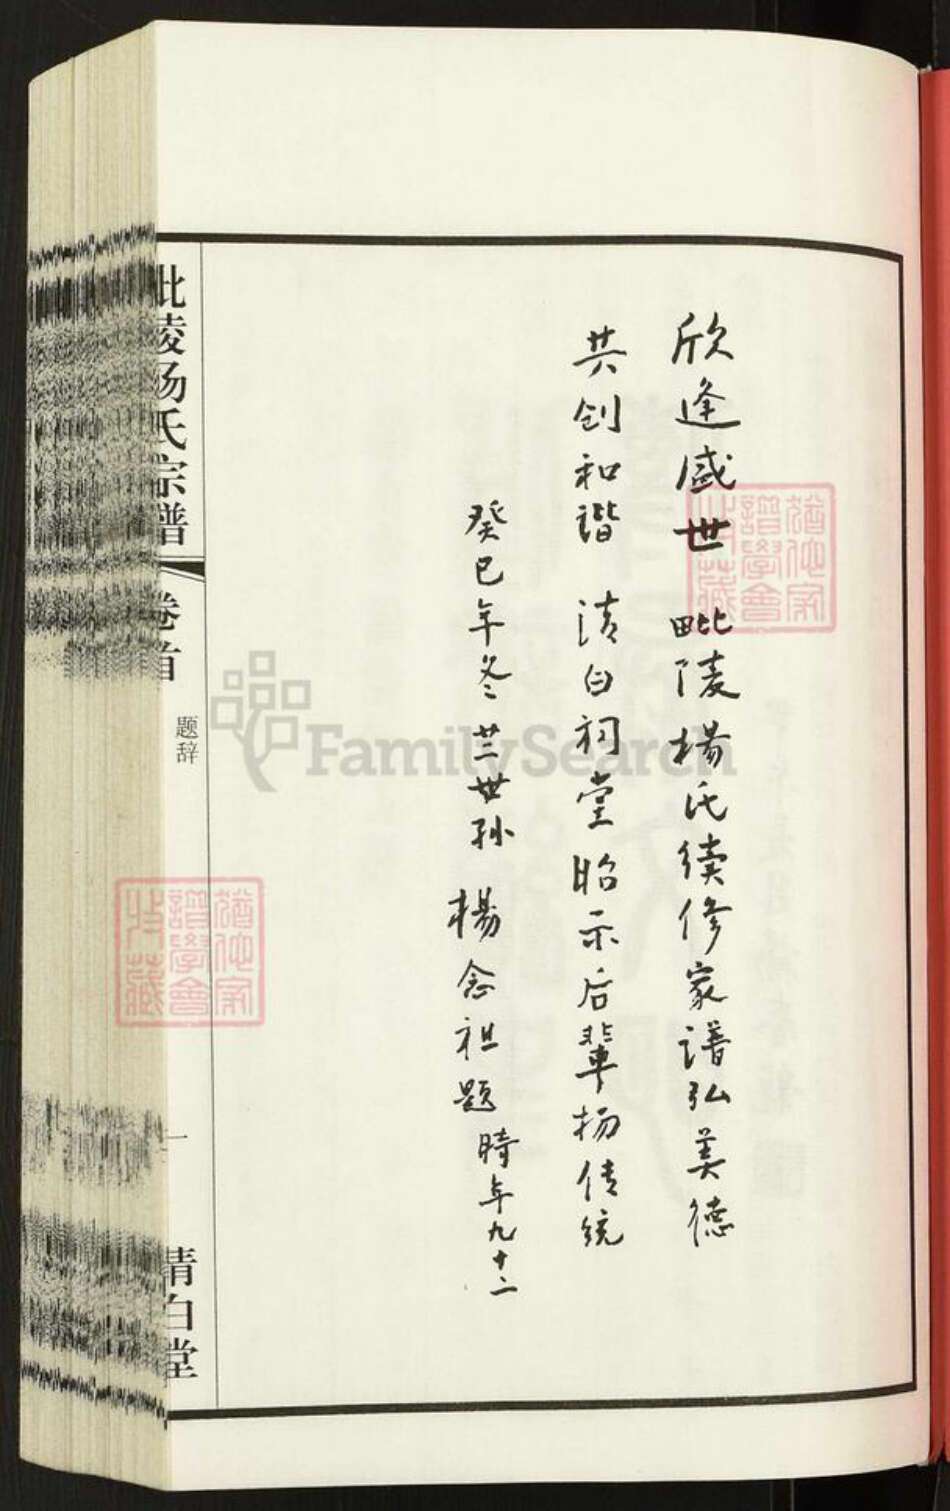 欣逢盛世 毗陵楊氏续修家谱弘美德
共创和谐 清白祠堂昭示后辈扬传统
癸巳年冬 卅世孙 楊念祖题 時年九十二
毗陵杨氏宗谱
卷首
题辞
一
清白堂
FamilySearch